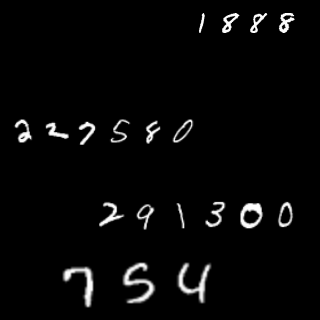 1888
227580
291300
754